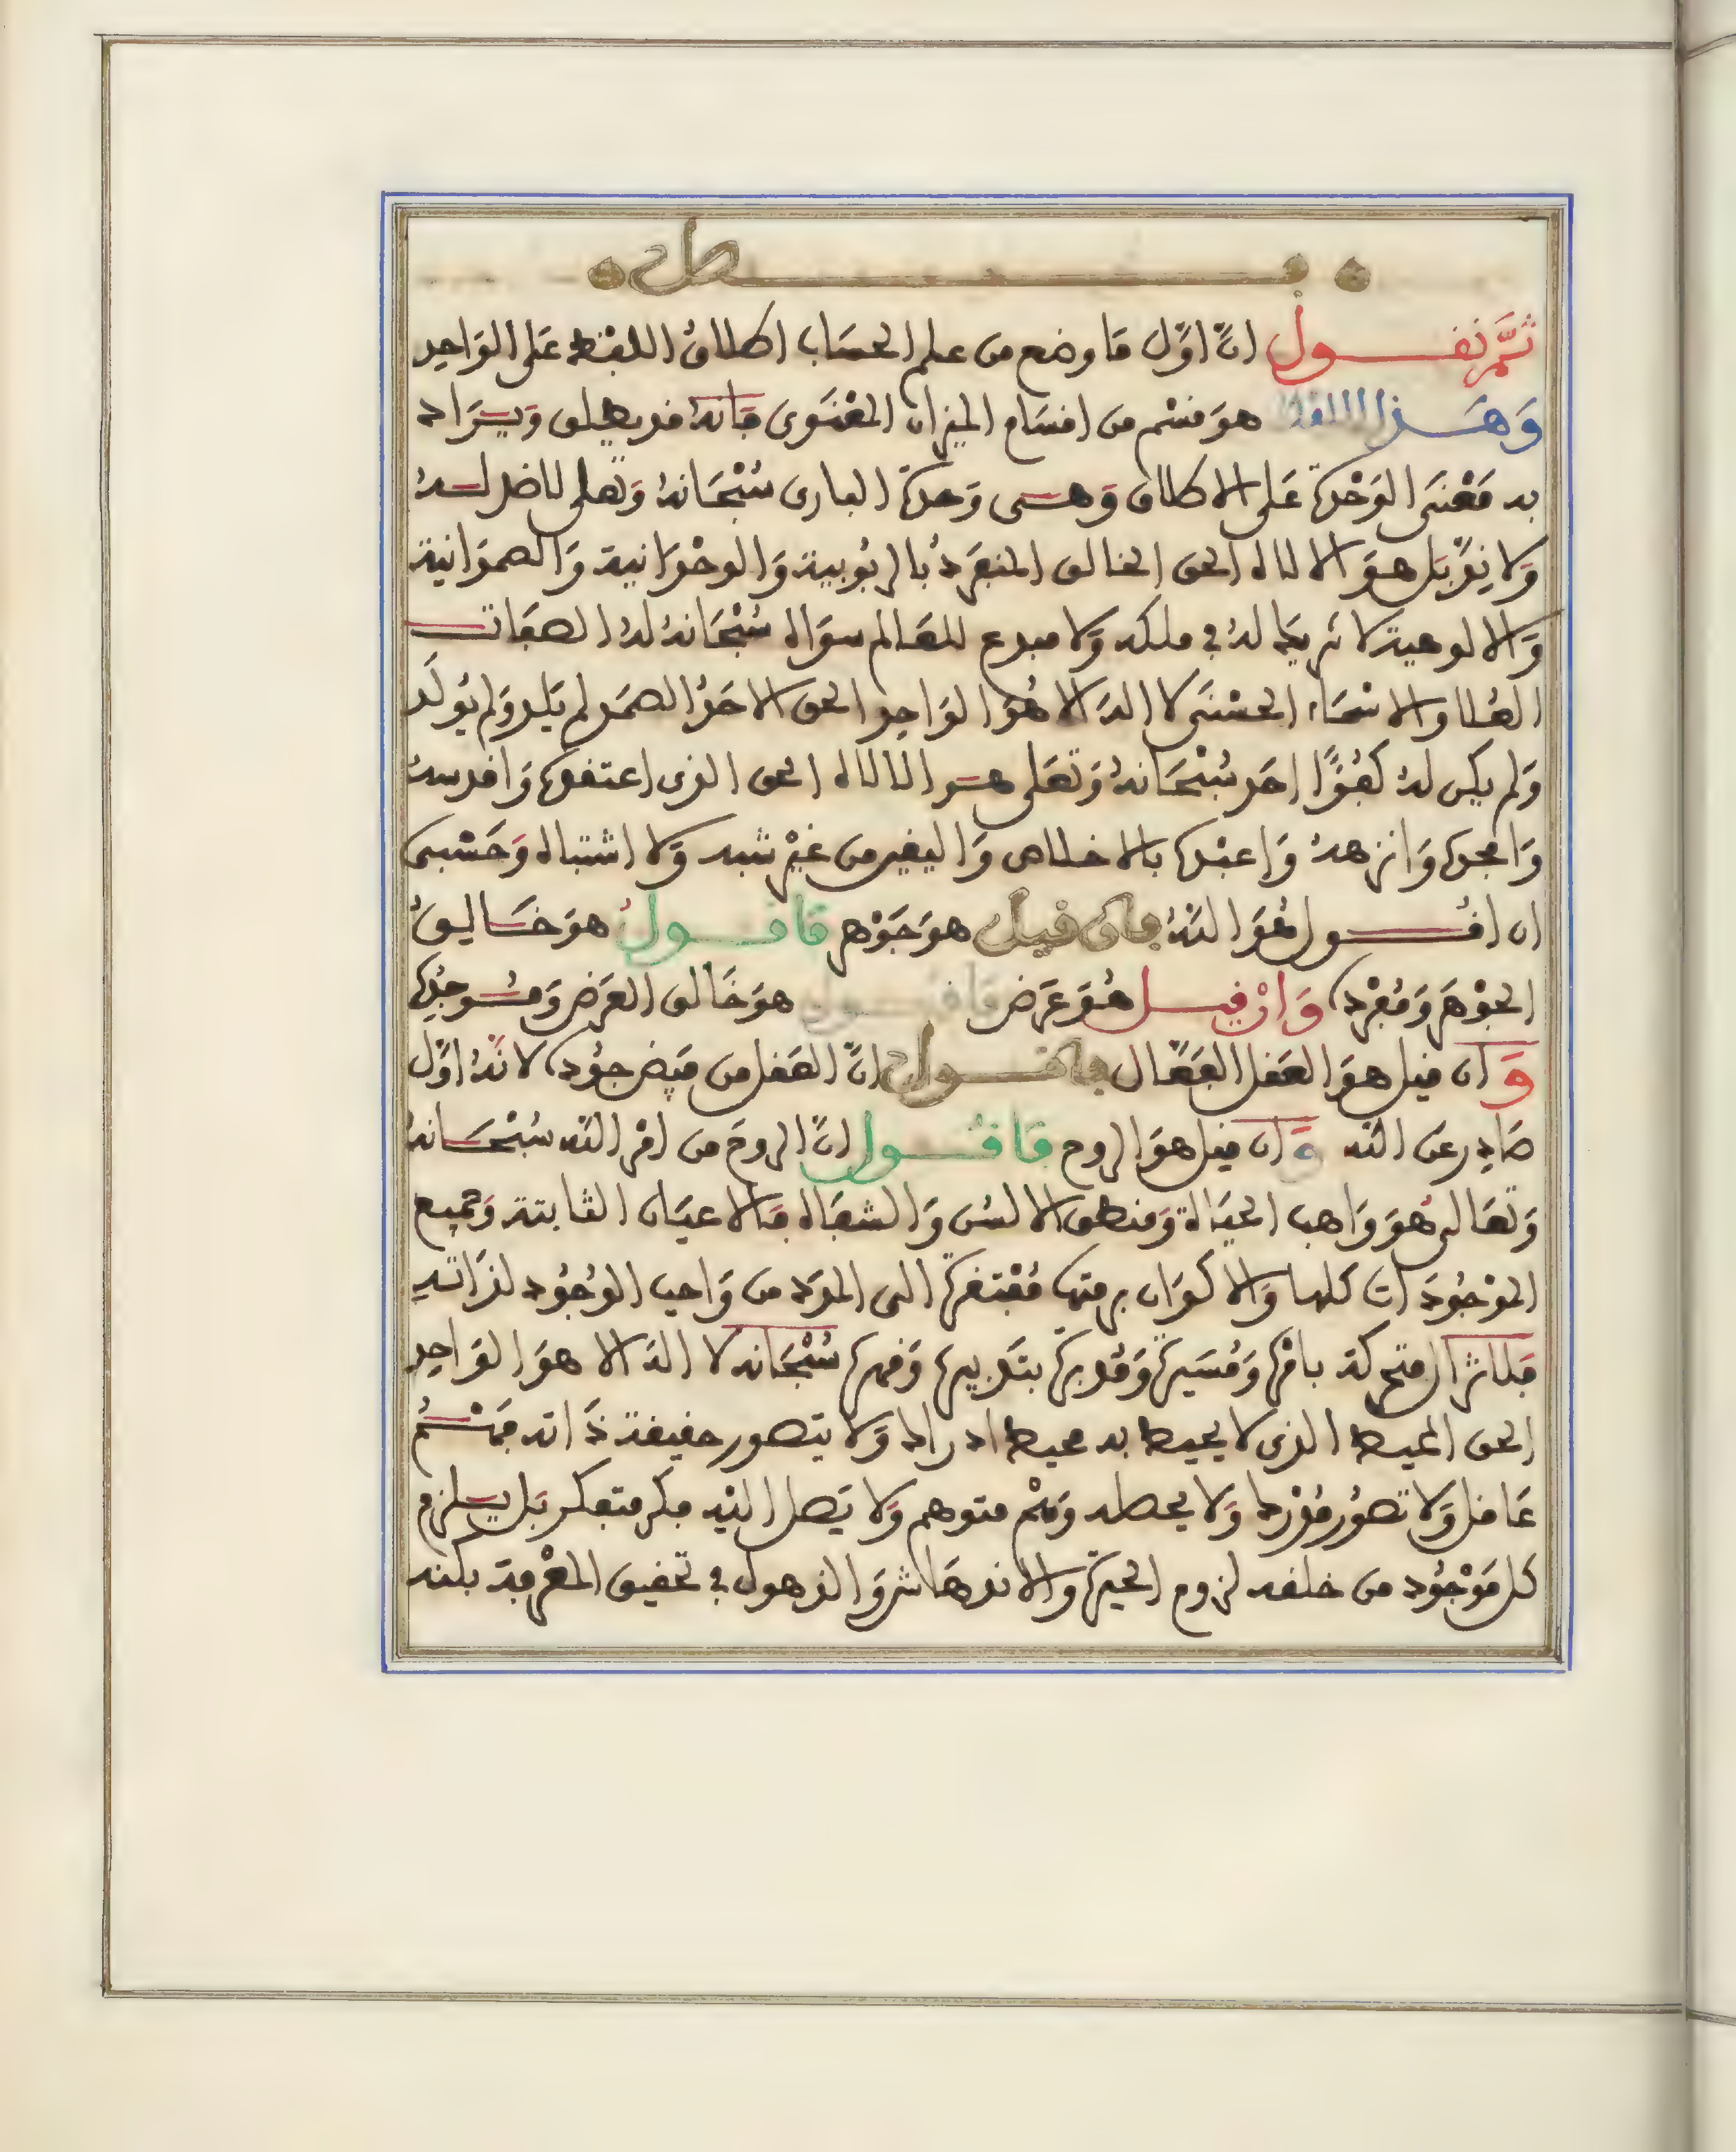 فصل
ثُمَّ نقول انّ اوّل ما وضع من علم الحسَاب اطلاقُ اللفظ عَلى الوَاحِد
وَهَذا اللفظ هوَ قسْم من اقسَام الميزان المعْنَوى فَانهُ قد يطلق وَيرَاد
به مَعْنَى الوَحْدة عَلى الاطلاق وَهى وَحدة البارى سُبْحَانهُ وَتعلى لاضد لهُ
وَلا نِدّ بَل هوَ الالاه الحق الخالق المنفرد بالربُوبية وَالوحْدَانية وَالصمدَانية
وَالالوهية لا شريك لهُ في ملكه وَلا مبدع للعَالم سوَاه سُبْحَانهُ لهُ الصفَات
العُلا والاسْمَاء الحسْنَى لا الهَ الا هُوَ الوَاحِد الحق الاحَدُ الصمَد لم يَلد وَلم يُولَد
وَلم يكن لهُ كفُؤًا احَد سُبْحَانهُ وَتعَلى هو الالاه الحق الذى اعتقده وَاقدسهُ
وَامجده وَانزههُ وَاعبْده بالاخلاص وَاليقين من غيْر شبه وَلا اشتباه وَحَسْبى
ان اقُول هُوَ اللهُ فان قيل هوَ جَوْهر فاقول هوَ خَالِقُ
الجوْهَر وَمُفرْده وَانْ قيل هُوَ عَرَض فاقول هوَ خَالق العَرَض وَمُوجدُه
وَان قيل هوَ العَقل الفَعّال فاقول انّ العَقل من فيَض جوُده لانّهُ اوّل
صَادِر عَن الله وَان قيل هوَ الروح فاقُول انّ الروحَ من امْر الله سُبْحَانهُ
وَتعَالى هُوَ وَاهب الحيَاة وَمنطق الالسُن وَالشفَاه فالاعيَان الثابتة وَجميع
الموْجُودَات كلها وَالاكوَان برمتها مُفْتقرة الى المدَد من وَاجب الوُجُود لذَاتهِ
فلاشا المتحركة بامْره وَمُسَيرة وَمُدبرة بتَدبيره وَقهره سُبْحَانه لا اله الا هوَ الوَاحِد
الحق المحيط الذى لا يحيط به محيط ادراك وَلا يتصور حقيقة ذَاته فَهْمُ
عَاقل وَلا تصُور مُدْرك وَلا يحط به وَهْم متوهم وَلا يَصل اليْه فكر متفكر بَل يلزم
كل مَوْجُود من خلقه لزوم الحيرة والاندهَاش وَالذهول في تحقيق المعْرفة بكنه